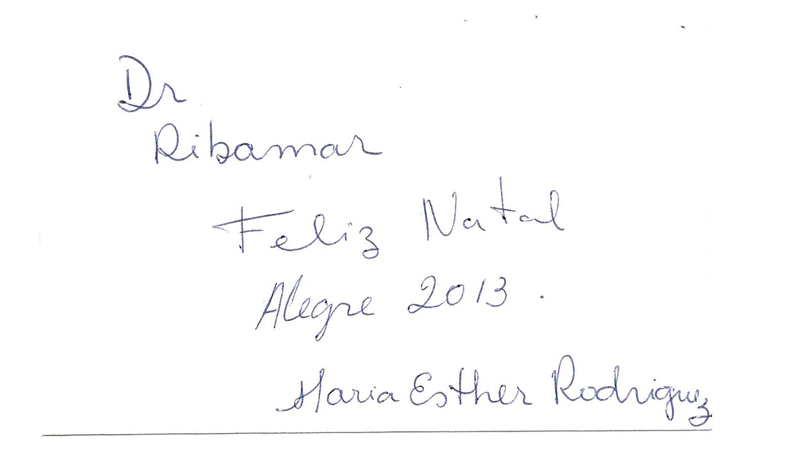 Dr
Ribamar
Feliz Natal
Alegre 2013.
Maria Esther Rodriguez